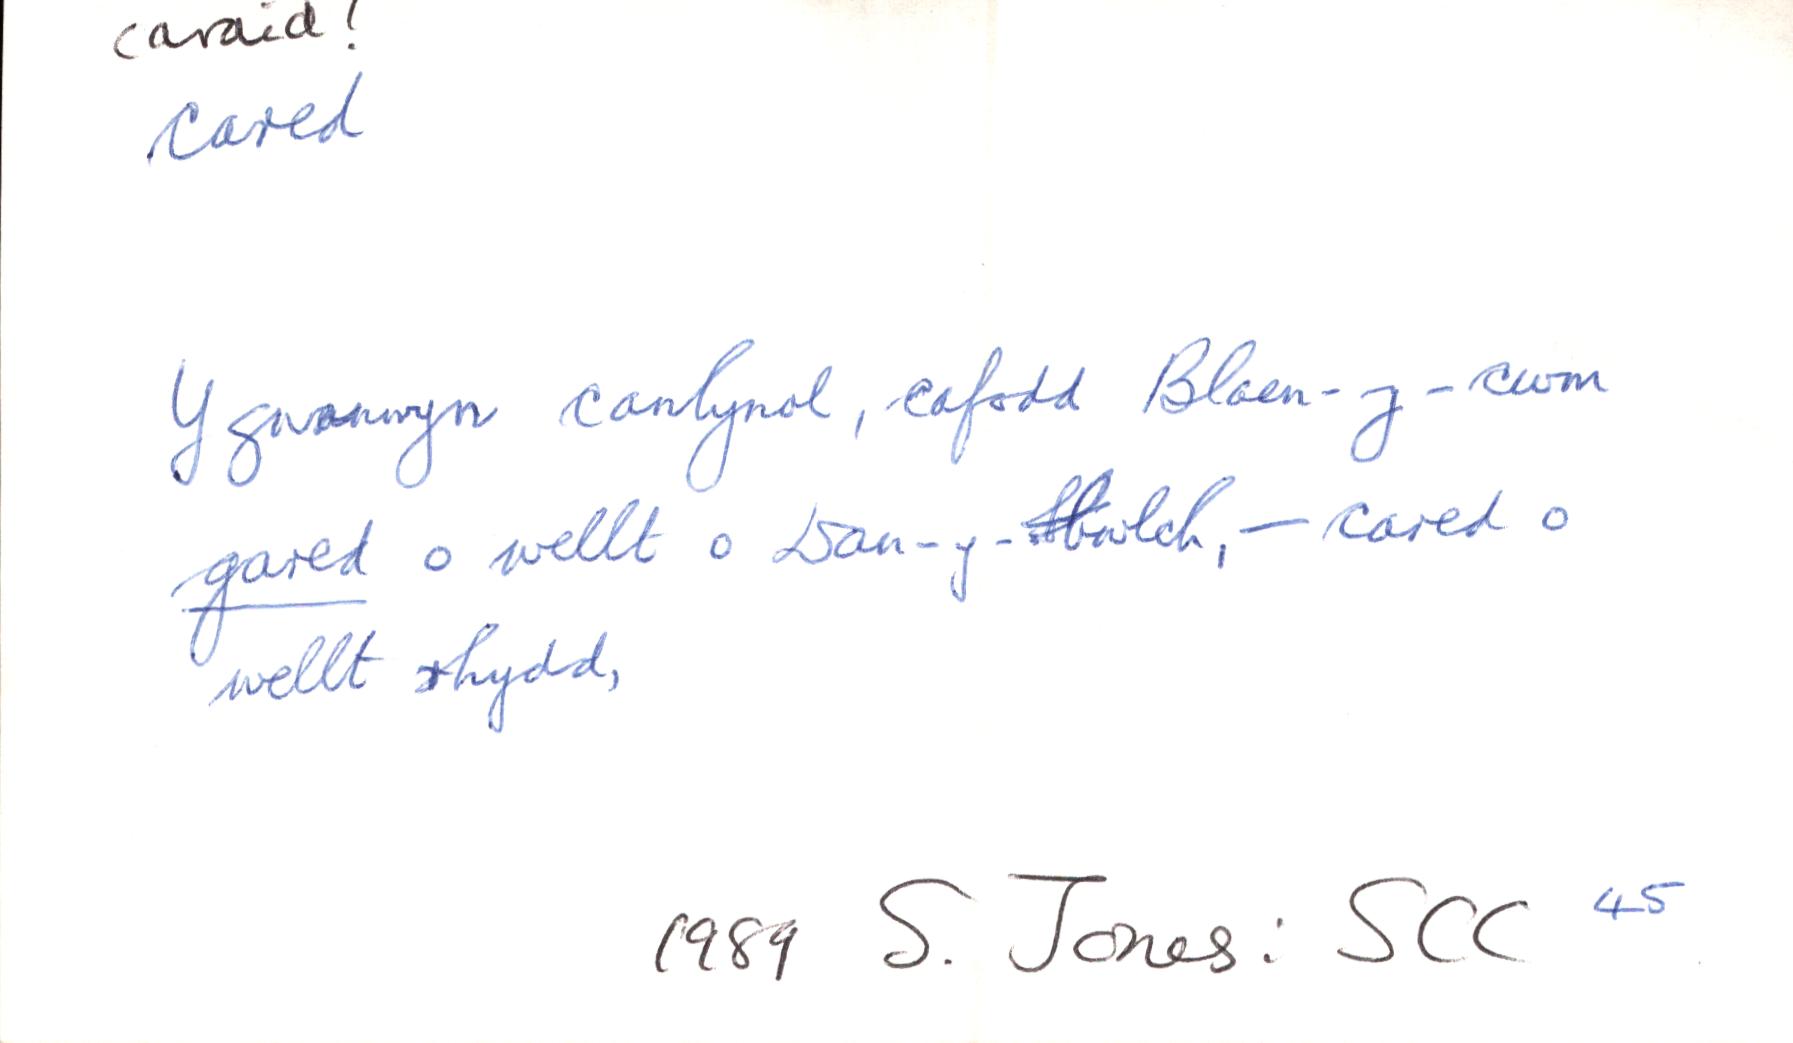 caraid!
cared
Y gwanwyn canlynol, cafodd Blaen-y-cwm
gared o wellt o Dan-y-bwlch, — cared o
wellt rhydd,
1989 S. Jones: SCC 45